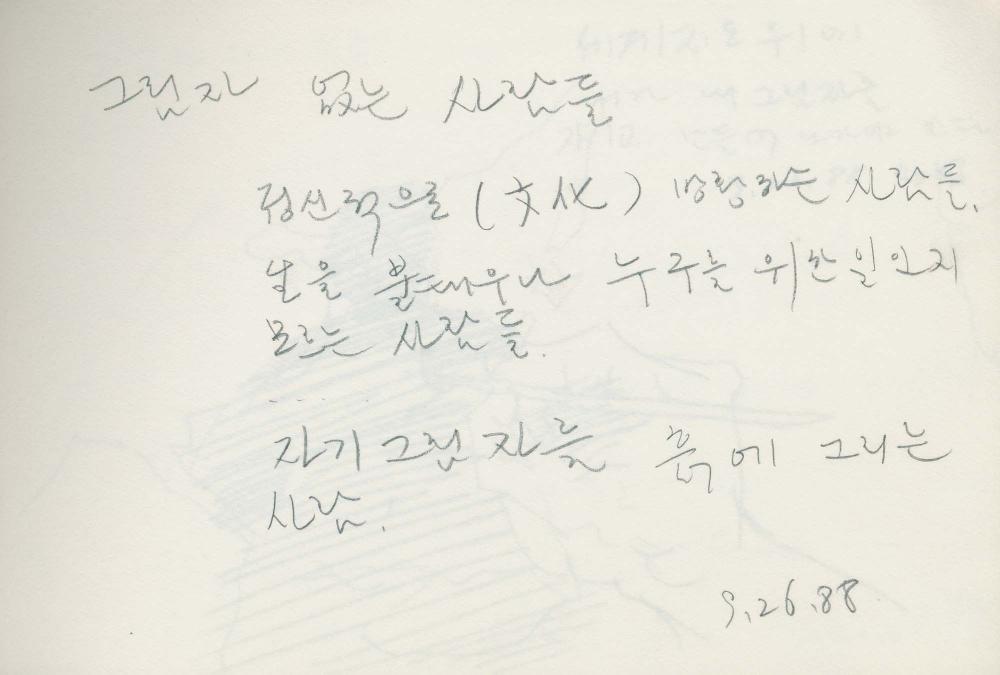 그림자 없는 사람들
정신적으로 (文化) 방황하는 사람들.
生을 불태우나 누구를 위한 일인지
모르는 사람들.
.....
자기 그림자를 흙에 그리는
사람.
9.26.88